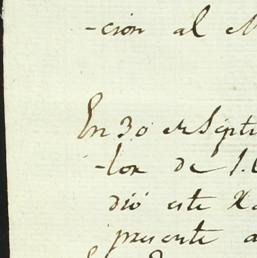 -cion al
En 30 de Septi
-lor de 1.
dió este
presente a